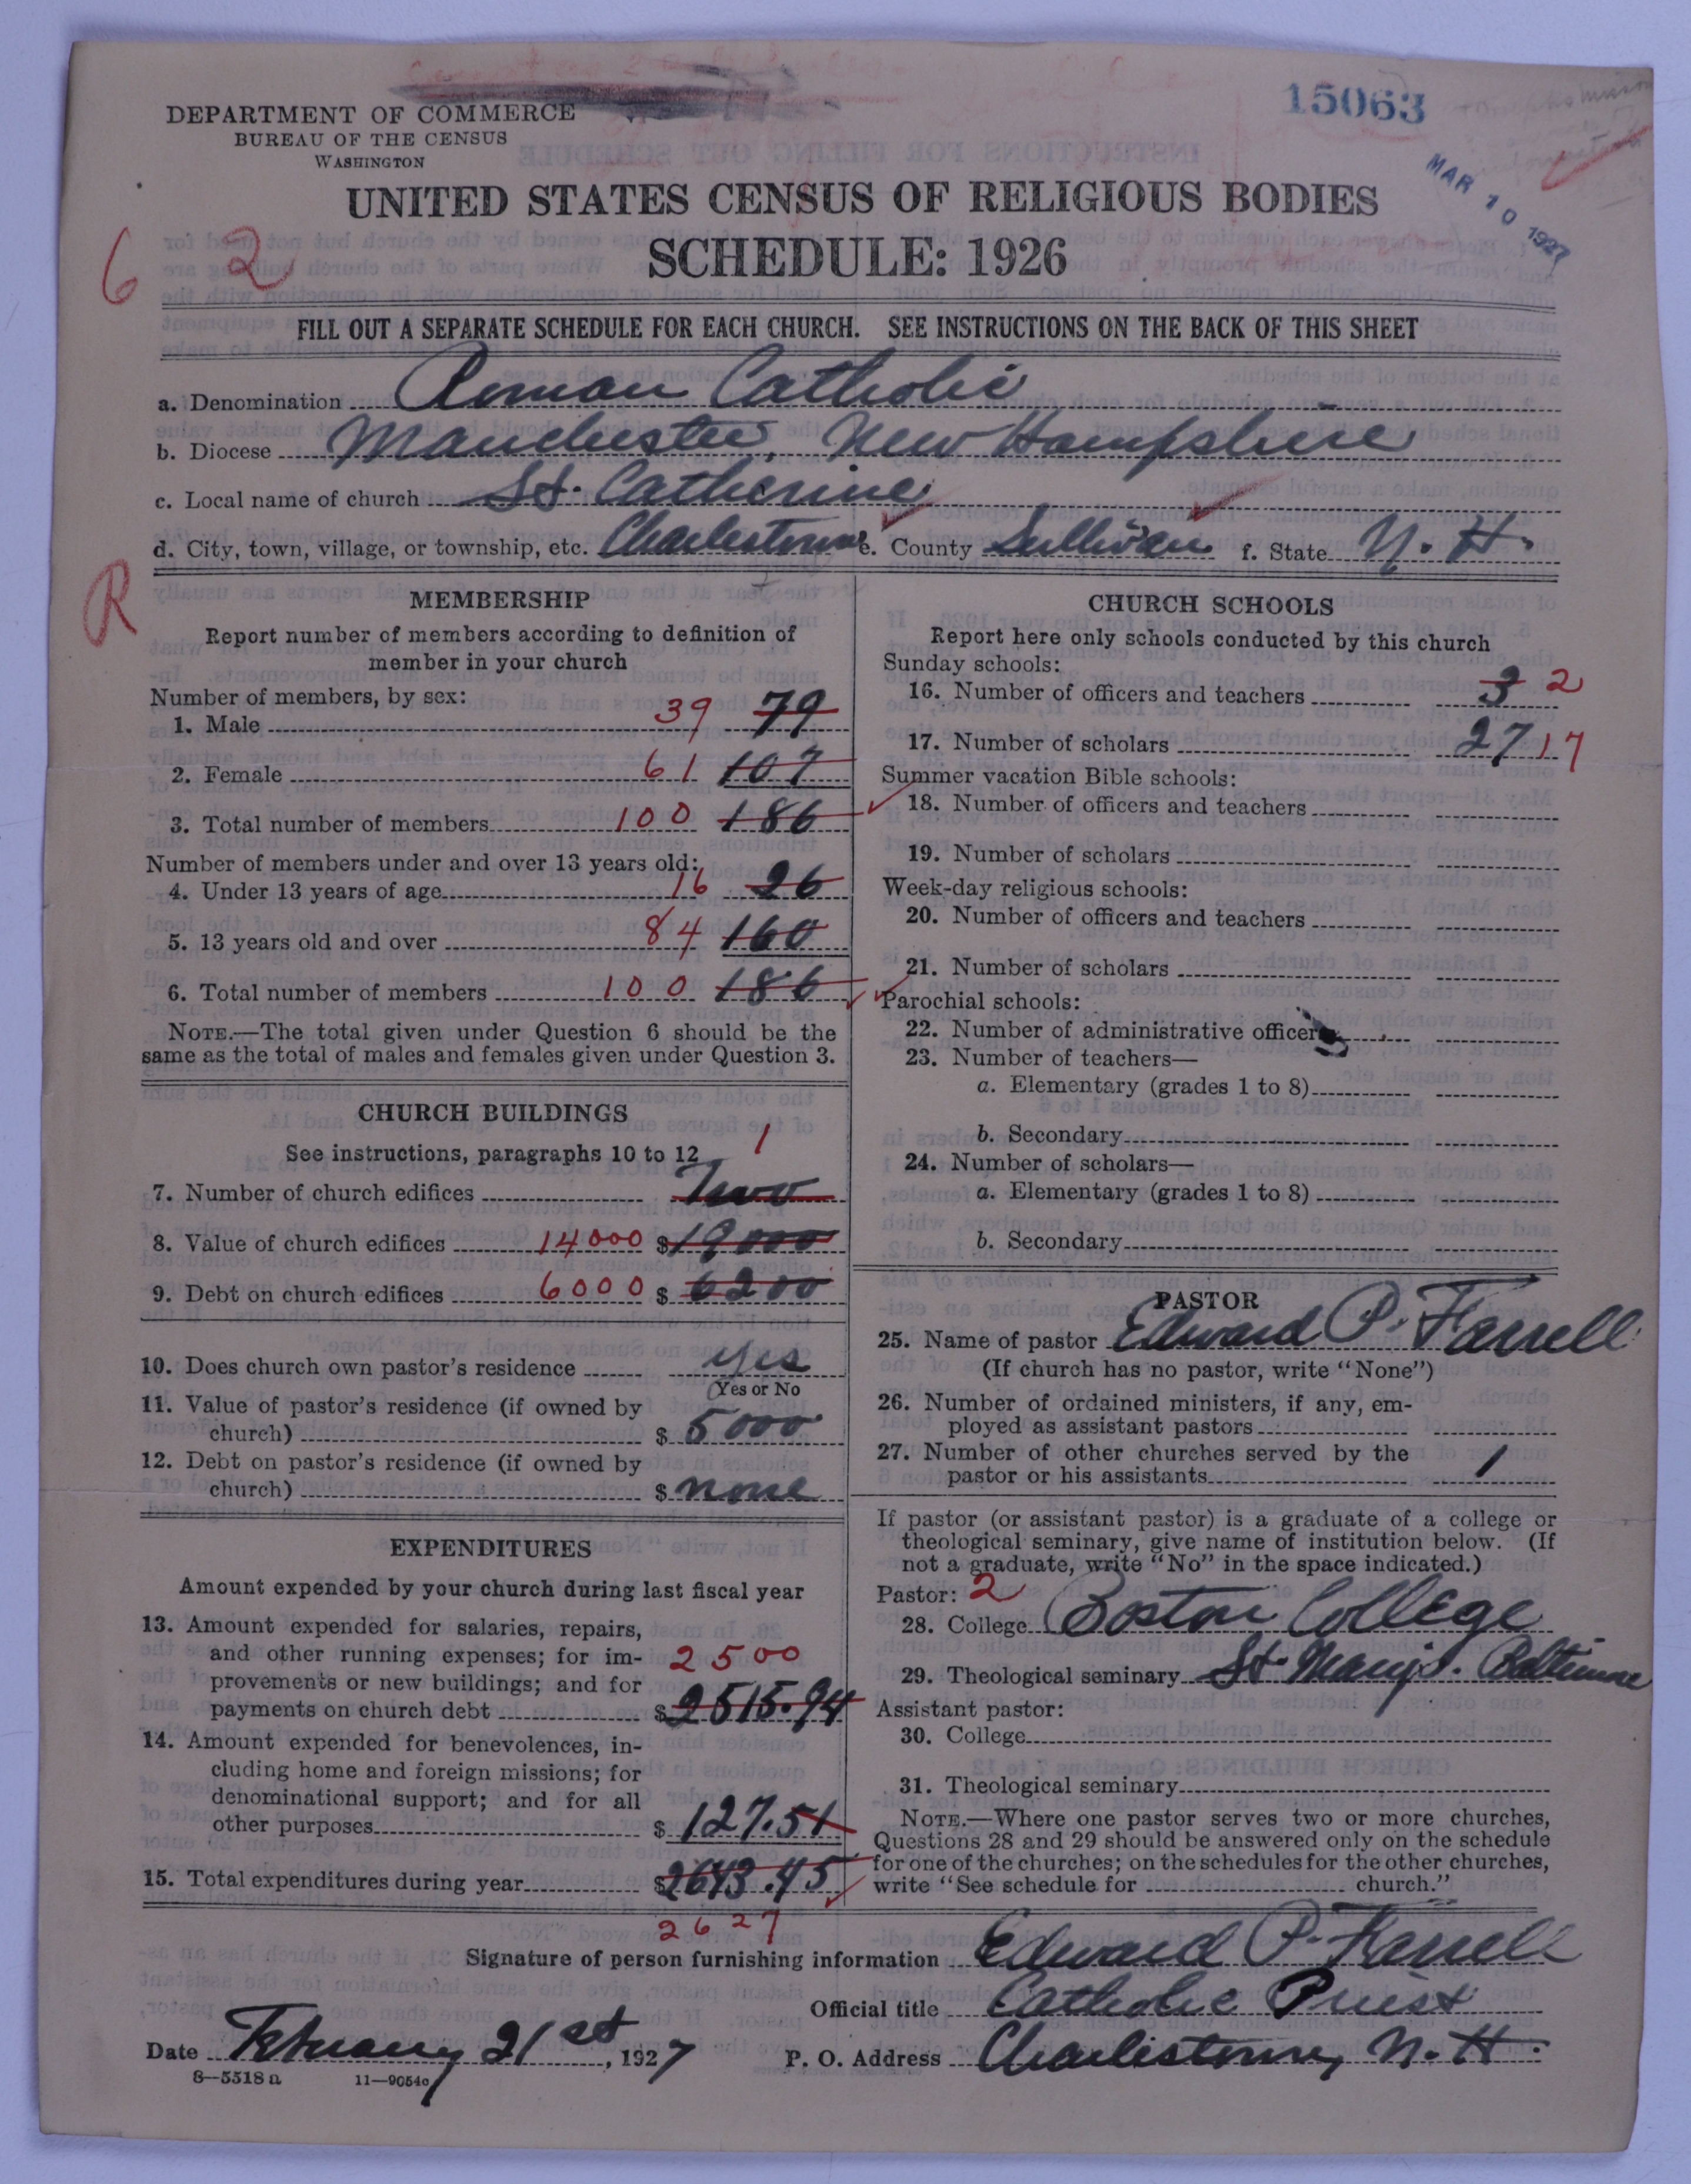 15063
DEPARTMENT OF COMMERCE
BUREAU OF THE CENSUS
WASHINGTON
MAR 10 1927
UNITED STATES CENSUS OF RELIGIOUS BODIES
6 2
SCHEDULE: 1926
FILL OUT A SEPARATE SCHEDULE FOR EACH CHURCH. SEE INSTRUCTIONS ON THE BACK OF THIS SHEET
a. Denomination Roman Catholic
b. Diocese Manchester, New Hampshire
c. Local name of church St. Catherine
d. City, town, village, or township, etc. Charlestown e. County Sullivan f. State N. H.
R
MEMBERSHIP
Report number of members according to definition of
member in your church
Number of members, by sex:
1. Male 39 79
2. Female 61 107
3. Total number of members 100 186
Number of members under and over 13 years old:
4. Under 13 years of age 16 26
5. 13 years old and over 84 160
6. Total number of members 100 186
NOTE.—The total given under Question 6 should be the
same as the total of males and females given under Question 3.
CHURCH BUILDINGS
See instructions, paragraphs 10 to 12
1
7. Number of church edifices Two
8. Value of church edifices 14000 $19000
9. Debt on church edifices 6000 $ 6200
10. Does church own pastor's residence yes
(Yes or No
11. Value of pastor's residence (if owned by
church) $ 5000
12. Debt on pastor's residence (if owned by
church) $ none
EXPENDITURES
Amount expended by your church during last fiscal year
13. Amount expended for salaries, repairs,
and other running expenses; for im-
2500
provements or new buildings; and for
payments on church debt $2515.94
14. Amount expended for benevolences, in-
cluding home and foreign missions; for
denominational support; and for all
other purposes $ 127.51
15. Total expenditures during year $2643.45
2627
CHURCH SCHOOLS
Report here only schools conducted by this church
Sunday schools:
16. Number of officers and teachers 3 2
17. Number of scholars 27 17
Summer vacation Bible schools:
18. Number of officers and teachers
19. Number of scholars
Week-day religious schools:
20. Number of officers and teachers
21. Number of scholars
Parochial schools:
22. Number of administrative officers
23. Number of teachers—
a. Elementary (grades 1 to 8)
b. Secondary
24. Number of scholars—
a. Elementary (grades 1 to 8)
b. Secondary
PASTOR
25. Name of pastor Edward P. Farrell
(If church has no pastor, write "None")
26. Number of ordained ministers, if any, em-
ployed as assistant pastors
27. Number of other churches served by the
pastor or his assistants 1
If pastor (or assistant pastor) is a graduate of a college or
theological seminary, give name of institution below. (If
not a graduate, write "No" in the space indicated.)
Pastor: 2
28. College Boston College
29. Theological seminary St. Mary's. Baltimore
Assistant pastor:
30. College
31. Theological seminary
NOTE.—Where one pastor serves two or more churches,
Questions 28 and 29 should be answered only on the schedule
for one of the churches; on the schedules for the other churches,
write "See schedule for church."
Signature of person furnishing information Edward P. Farrell
Official title Catholic Priest
Date February 21st, 1927 P. O. Address Charlestown, N. H.
8—5518 a 11—9054c